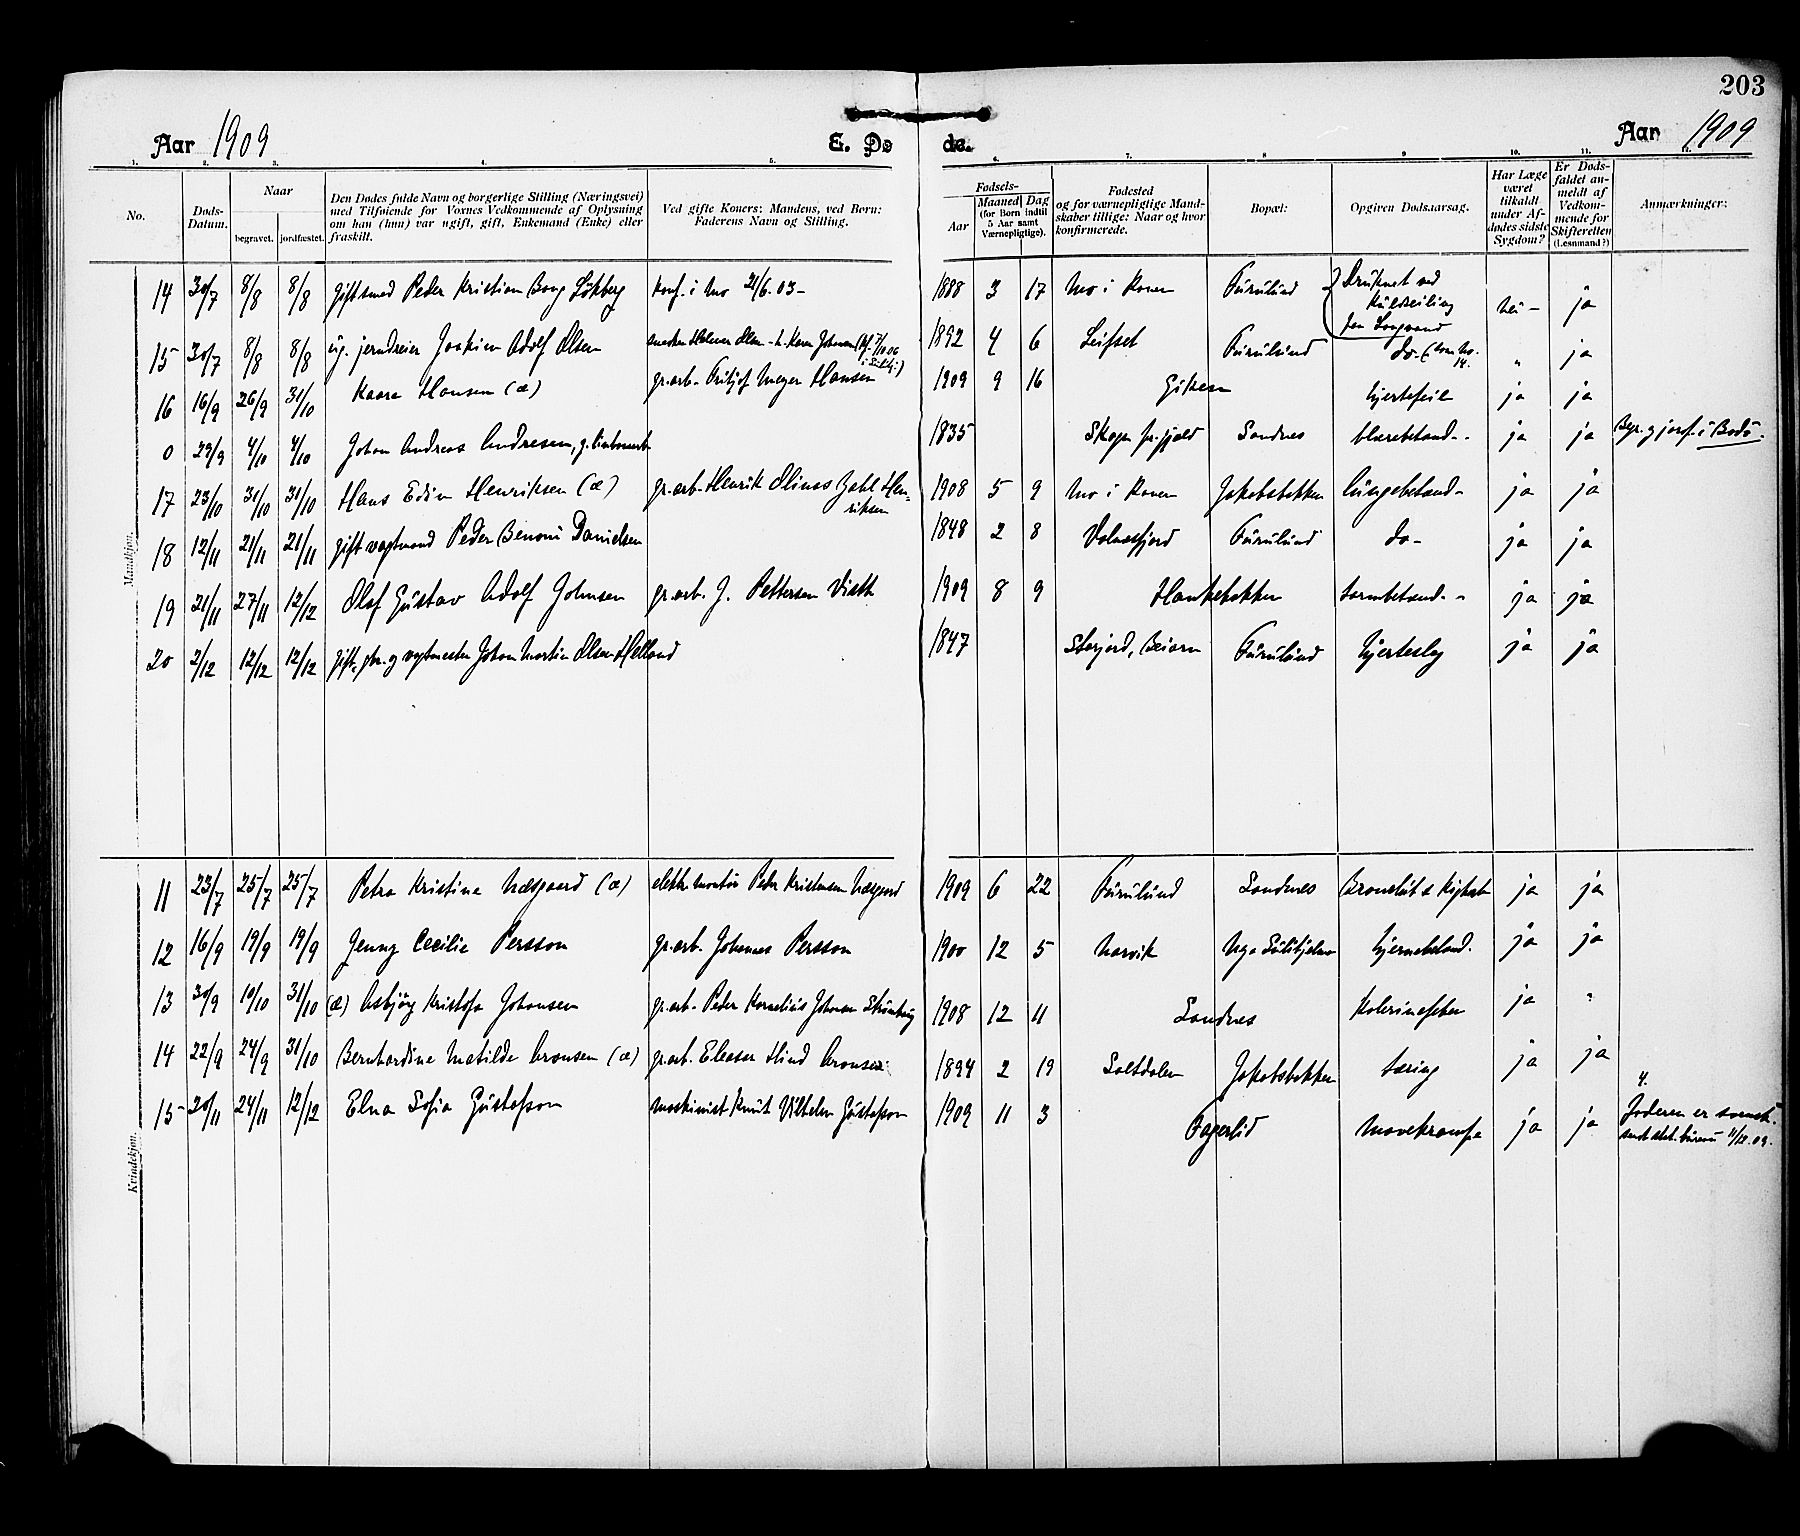 203
Aar 1909 E. Dø de. Aar 1909
1. 2. 3. 4. 5. 6. 7. 8 9 10. 11. 12.
No. Døds-Datum. Naar begravet. jordfæstet. Den Dødes fulde Navn og borgerlige Stilling (Næringsvei) med Tilføiende for Voxnes Vedkommende af Oplysning om han (hun) var ugift, gift, Enkemand (Enke) eller fraskilt. Ved gifte Koner: Mandens, ved Børn: Faderens Navn og Stilling. Fødsels- Aar Maaned Dag (for Børn indtil 5 Aar samt Værnepligtige). Fødested og for værnepligtige Mandskaber tillige: Naar og hvor konfirmerede. Bopæl: Opgiven Dødsaarsag. Har Læge været tilkaldt under Afdødes sidste Sygdom? Er Dødsfaldet anmeldt af Vedkommende for Skifteretten (Lensmand?) Anmærkninger:
Mandkjøn.
14 30/7 8/8 8/8 gift smed Peder Kristian Bang Løkberg konf. i Mo 21/6 03- 1888 3 17 Mo i Ranen Furulund Druknet ved Kulseiling paa Langvand nei - ja
15 30/7 8/8 8/8 ug. jerndreier Joakim Adolf Olsen 1892 4 6 Leifset Furulund do- (som No. 14. " ja
16 16/9 26/9 31/10 Kaare Hansen (æ) gr.arb. Fritjof Meyer Hansen 1909 9 16 Giken hjertefeil ja ja
0 29/9 4/10 4/10 Johan Andreas Andresen, 1835 Sandnes blærebetænd.- ja ja Begr. og jordf. i Bodø.
17 23/10 31/10 31/10 Hans Edin Henriksen (æ) gr.arb. Henrik Olinus Zahl Henriksen 1908 5 9 Mo i Ranen Jakobsbakken lungebetænd- ja ja
18 12/11 21/11 21/11 gift vagtmand Peder Benoni Danielsen 1848 2 8 Valnesfjord Furulund do- ja ja
19 21/11 27/11 12/12 Olaf Gustav Adolf Johnsen gr.arb. J. Pettersen 1909 8 9 Hankebakken tarmbetænd.- ja ja
20 2/12 12/12 12/12 gift, og vagtmester Johan Martin Olsen Helland 1847 Storjord, Beiarn Furulund hjerteslag ja ja
Kvindekjøn.
11 23/7 25/7 25/7 Petra Kristine Næsgaard (æ) elektr. montør Peder Kristensen Næsgaard 1909 6 22 Furulund Sandnes Bronchit & Kighoste ja ja
12 16/9 19/9 19/9 Jenny Cecilie Persson gr.arb. Johannes Persson 1900 12 5 Narvik Nye Sulitjelma hjernebetænd. ja ja
13 30/9 10/10 31/10 (æ) Asbjørg Kristofa Johansen gr.arb. Peder Kornelius Johansen 1908 12 11 Sandnes Kolerinefeber ja "
14 22/9 24/9 31/10 Bernhardine Matilde Aronsen (æ) gr.arb. Eleasar Hind Aronsen 1894 2 19 Saltdalen Jakobsbakken tæring ja ja
15 20/11 24/11 12/12 Elna Sofia Gustafson maskinist Knut Vilhelm Gustafsson 1909 11 3 Fagerlid Mavekrampe ja ja 4. Faderen er svensk. 11/12 09.